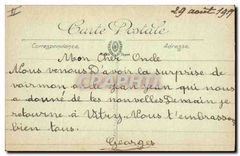 II
29 août 191
Carte Postale
Correspondance
Adresse
Mon Cher Oncle
Nous venons D'avoir la surprise de
voir mon oncle Gargean qui nous
a donné de tes nouvelles Demain je
retourne à Vitry Nous t'embrassons
bien tous.
Georges